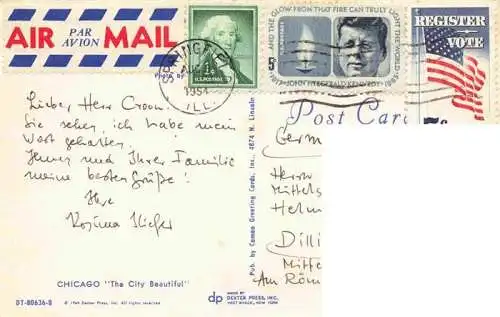 AIR PAR AVION MAIL
Photo by
U.S. POSTAGE
1¢
SPRINGFIELD
1964
ILL.
AND THE GLOW FROM THAT FIRE CAN TRULY LIGHT THE WORLD
1917·JOHN FITZGERALD KENNEDY·1963
5¢
U.S. POSTAGE
REGISTER
VOTE
Post Card
Lieber Herr Croon!
Sie sehen, ich habe mein
Wort gehalten.
Ihnen und Ihrer Familie
meine besten Grüße!
Ihre
Rosina
Germ
Herrn
Mittels
Helm
Dilli
Mitte
Am Röm
Pub. by Cameo Greeting Cards, Inc., 4674 N. Lincoln
CHICAGO "The City Beautiful"
DT-80636-B
© 1964 Dexter Press, Inc. All rights reserved
dp MADE BY
DEXTER PRESS, INC.
WEST NYACK, NEW YORK